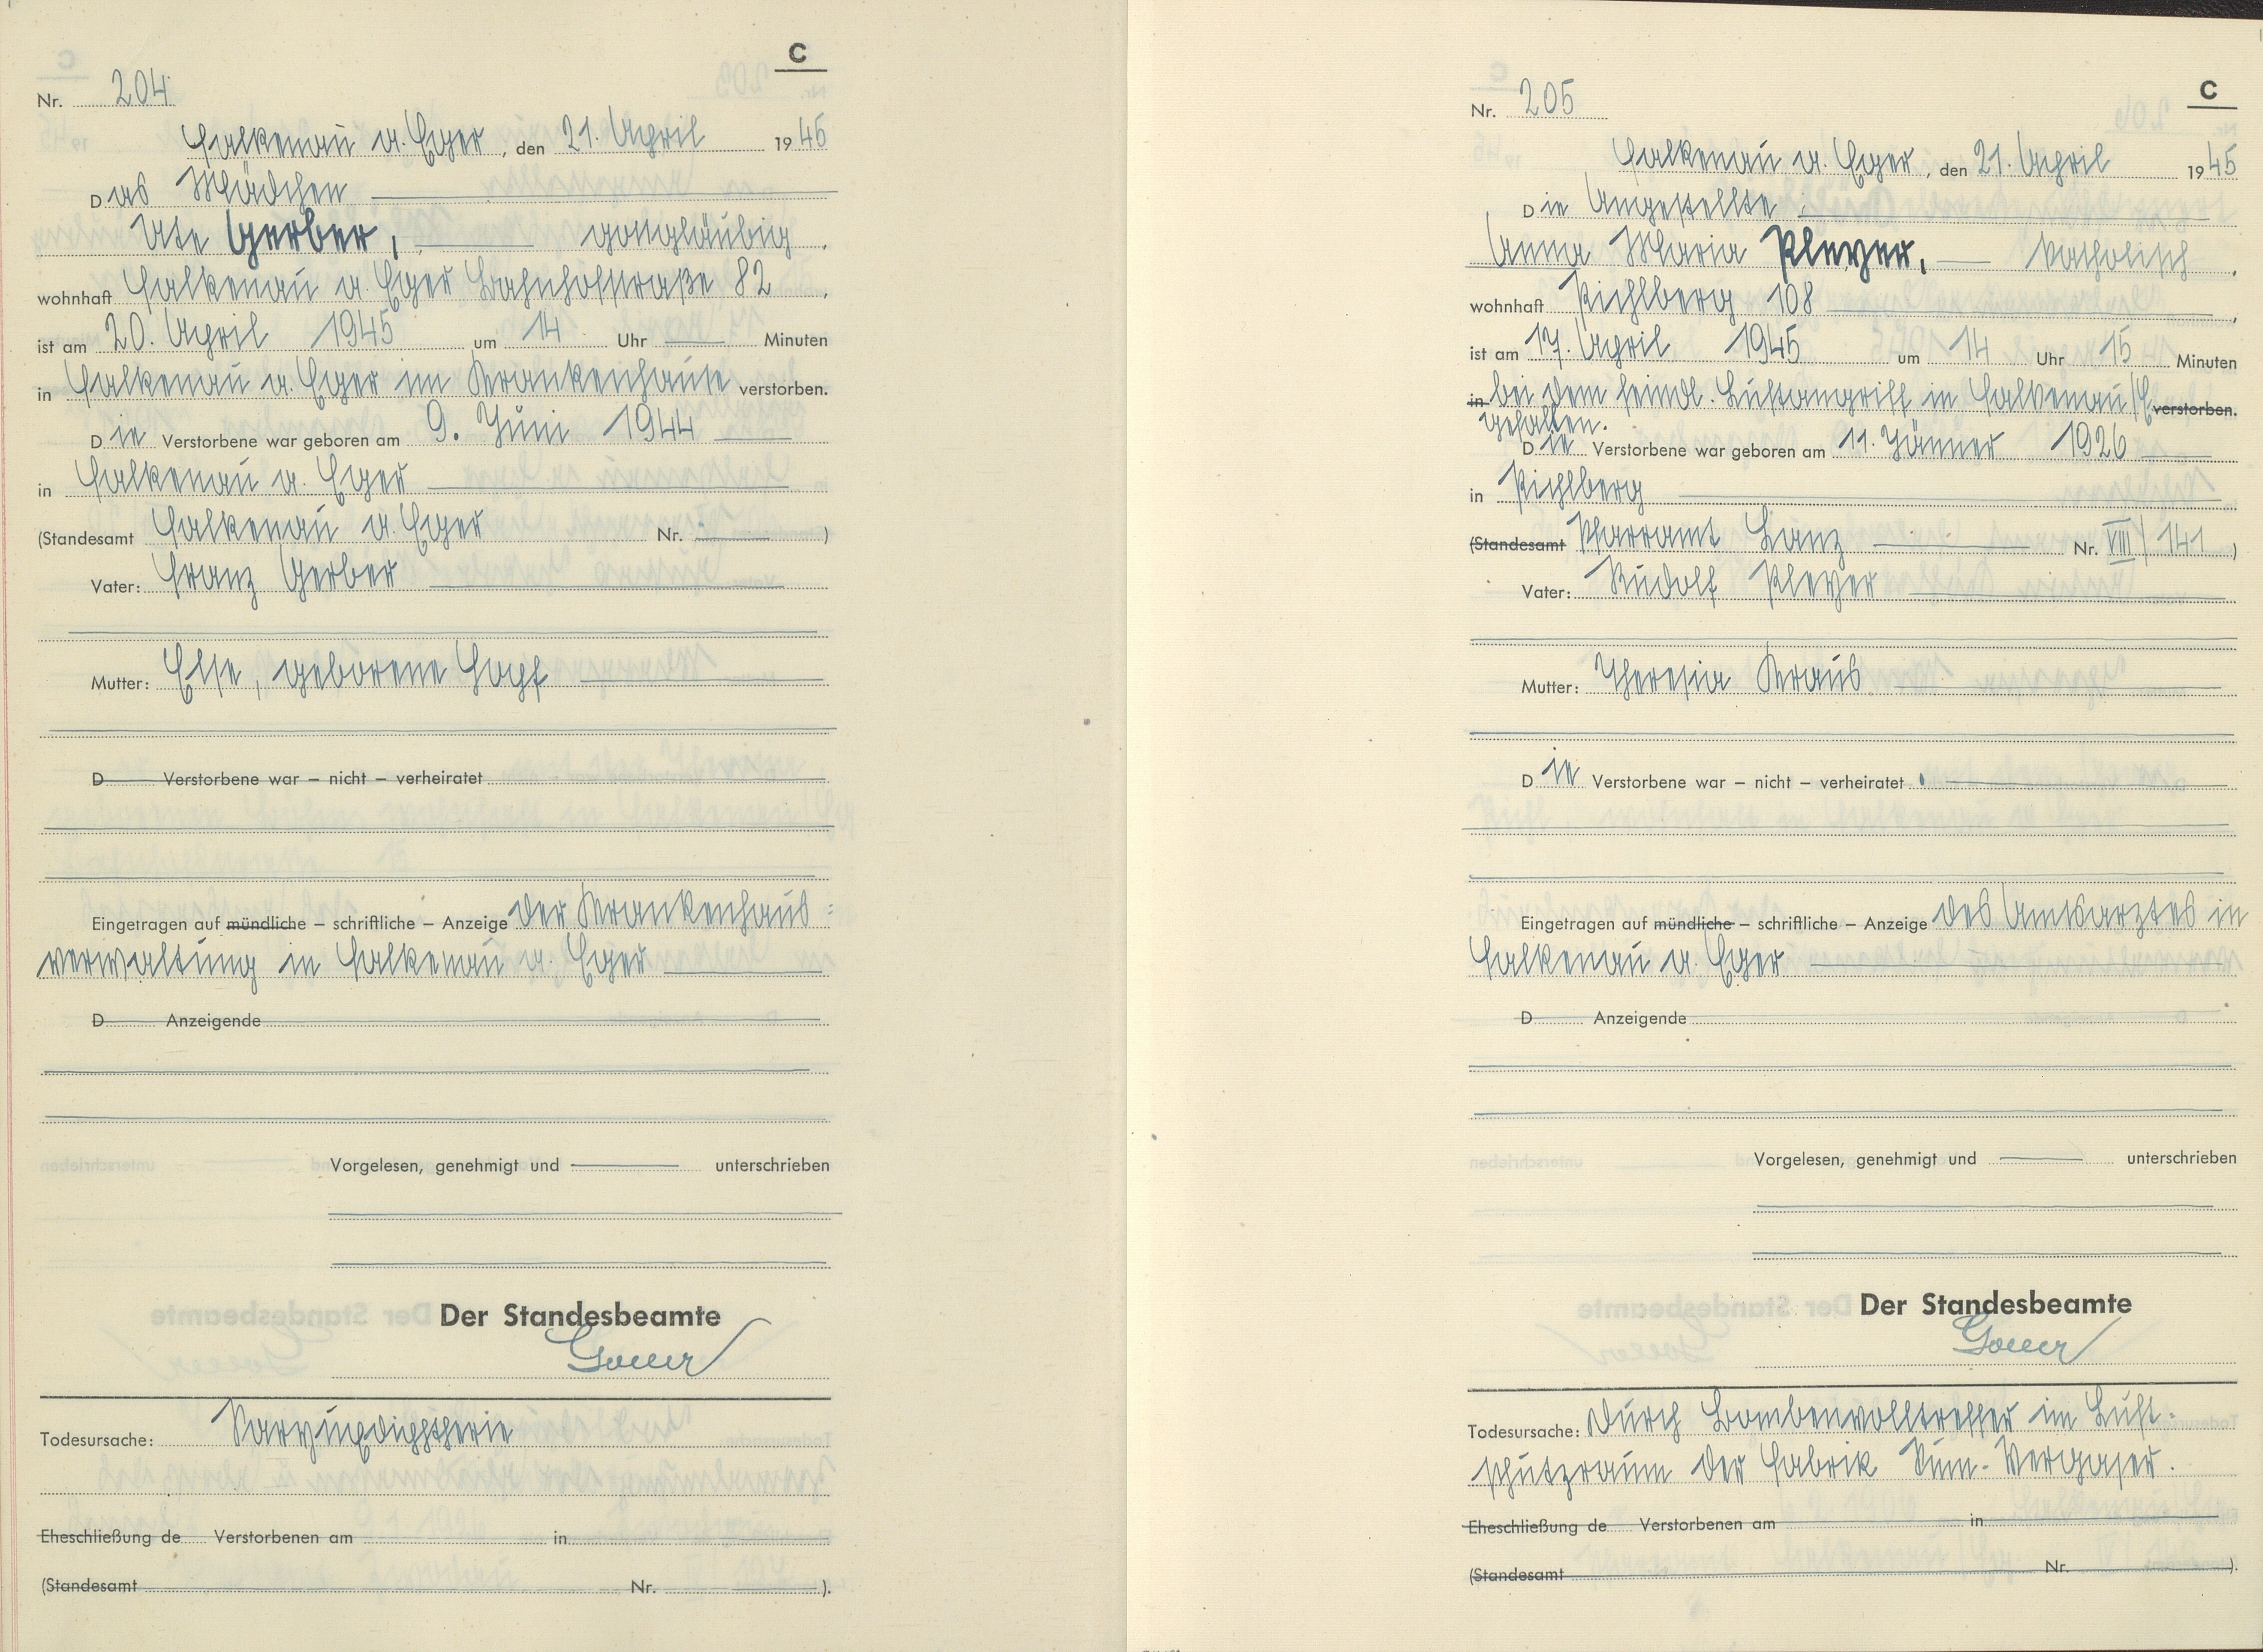 C
Nr. 204
Falkenau a. Eger, den 21. April 1945
Das Mädchen
Ute Gerber, gottgläubig.
wohnhaft Falkenau a. Eger Bahnhofstraße 82,
ist am 20. April 1945 um 14 Uhr Minuten
in Falkenau a. Eger im Krankenhause verstorben.
Die Verstorbene war geboren am 9. Juni 1944
in Falkenau a. Eger
(Standesamt Falkenau a. Eger Nr. )
Vater: Franz Gerber
Mutter: Else, geborene Hopf
D Verstorbene war – nicht – verheiratet
Eingetragen auf mündliche – schriftliche – Anzeige der Krankenhaus=
verwaltung in Falkenau a. Eger
D Anzeigende
Vorgelesen, genehmigt und unterschrieben
Der Standesbeamte
Todesursache:
Eheschließung de Verstorbenen am in
(Standesamt Nr. ).
C
Nr. 205
Falkenau a. Eger, den 21. April 1945
Die Angestellte
Anna Maria Pleyer, katholisch.
wohnhaft Pichlberg 108,
ist am 17. April 1945 um 14 Uhr 15 Minuten
in bei dem feindl. Luftangriff in Falkenau/E verstorben.
gefallen.
Die Verstorbene war geboren am 11. Jänner 1926
in Pichlberg
(Standesamt Pfarramt Lanz Nr. VIII/141)
Vater: Rudolf Pleyer
Mutter: Theresia Kraus
Die Verstorbene war – nicht – verheiratet.
Eingetragen auf mündliche – schriftliche – Anzeige des Amtsarztes in
Falkenau a. Eger
D Anzeigende
Vorgelesen, genehmigt und unterschrieben
Der Standesbeamte
Todesursache: Durch Bombenvolltreffer im Luft=
schutzraum der Fabrik Sum-Vergaser.
Eheschließung de Verstorbenen am in
(Standesamt Nr. ).